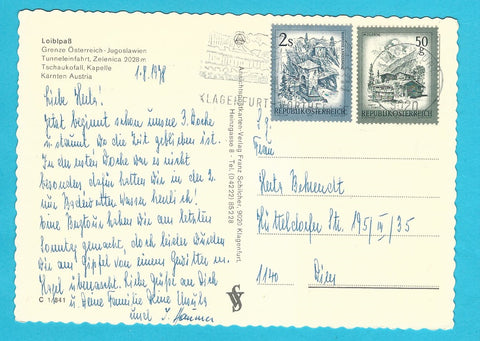 Loiblpaß
Grenze Österreich-Jugoslawien
Tunneleinfahrt, Zelenica 2028 m
Tschaukofall, Kapelle
Kärnten Austria
1.8.1978
Liebe Herta!
Jetzt beginnt schon unsere 3. Woche
u. staunt wo die Zeit geblieben ist.
In der ersten Woche war es nicht
besonders dafür hatten wir in der 2.
nur Badewetter. Wasser herrlich!
Eine Bergtour haben wir am letzten
Sonntag gemacht, doch leider wurden
wir am Gipfel von einem Gewitter m.
Hagel überrascht. Liebe Grüße an Dich
u. Deine Familie Deine
und
C 1/841
Ansichtspostkarten-Verlag Franz Schilcher, 9020 Klagenfurt,
Heinzgasse 8 - Tel. (04222) 85228
KLAGENFURT
WÖRTHER
9020
2 S
REPUBLIK ÖSTERREICH
50 g
REPUBLIK ÖSTERREICH
Frau
Herta Behrendt
Hütteldorfer Str. 195/ /35
1140 Wien